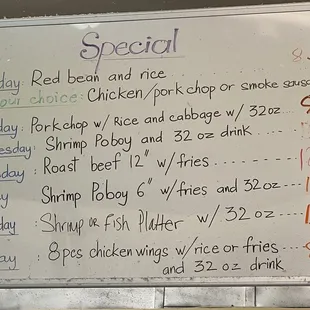 Special
day: Red bean and rice
our choice: Chicken/porkchop or smoke sausa
day: Porkchop w/ Rice and cabbage w/ 32oz
esday: Shrimp Poboy and 32 oz drink
day: Roast beef 12" w/fries
ay Shrimp Poboy 6" w/fries and 32oz
day: Shrimp or Fish Platter w/ 32 oz
ay: 8pcs chicken wings w/rice or fries
and 32 oz drink